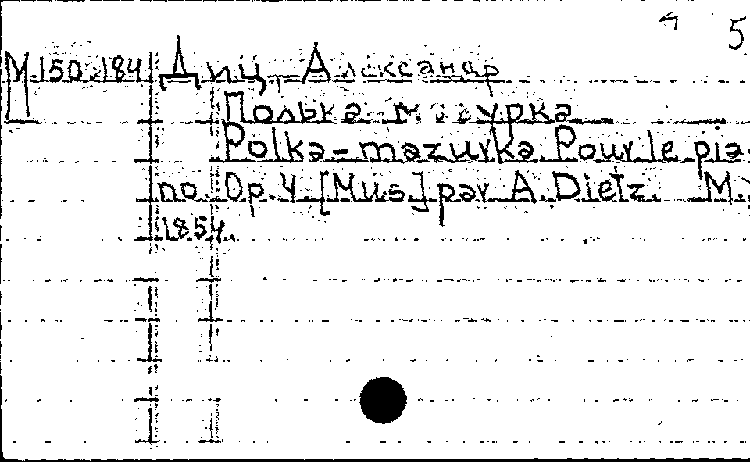 5
М 150.184 Диц, Александр
Полька мазурка
Polka-mazurka. Pour le pia-
no. Op. 4. [Mus.] par A. Dietz. M.,
1854.